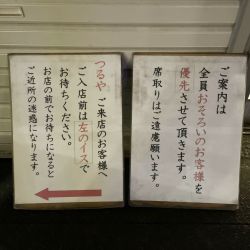 ご案内は
全員おそろいのお客様を
優先させて頂きます。
席取りはご遠慮願います。
つるや ご来店のお客様へ
ご入店前は左のイスで
お待ちください。
お店の前でお待ちになると
ご近所の迷惑になります。